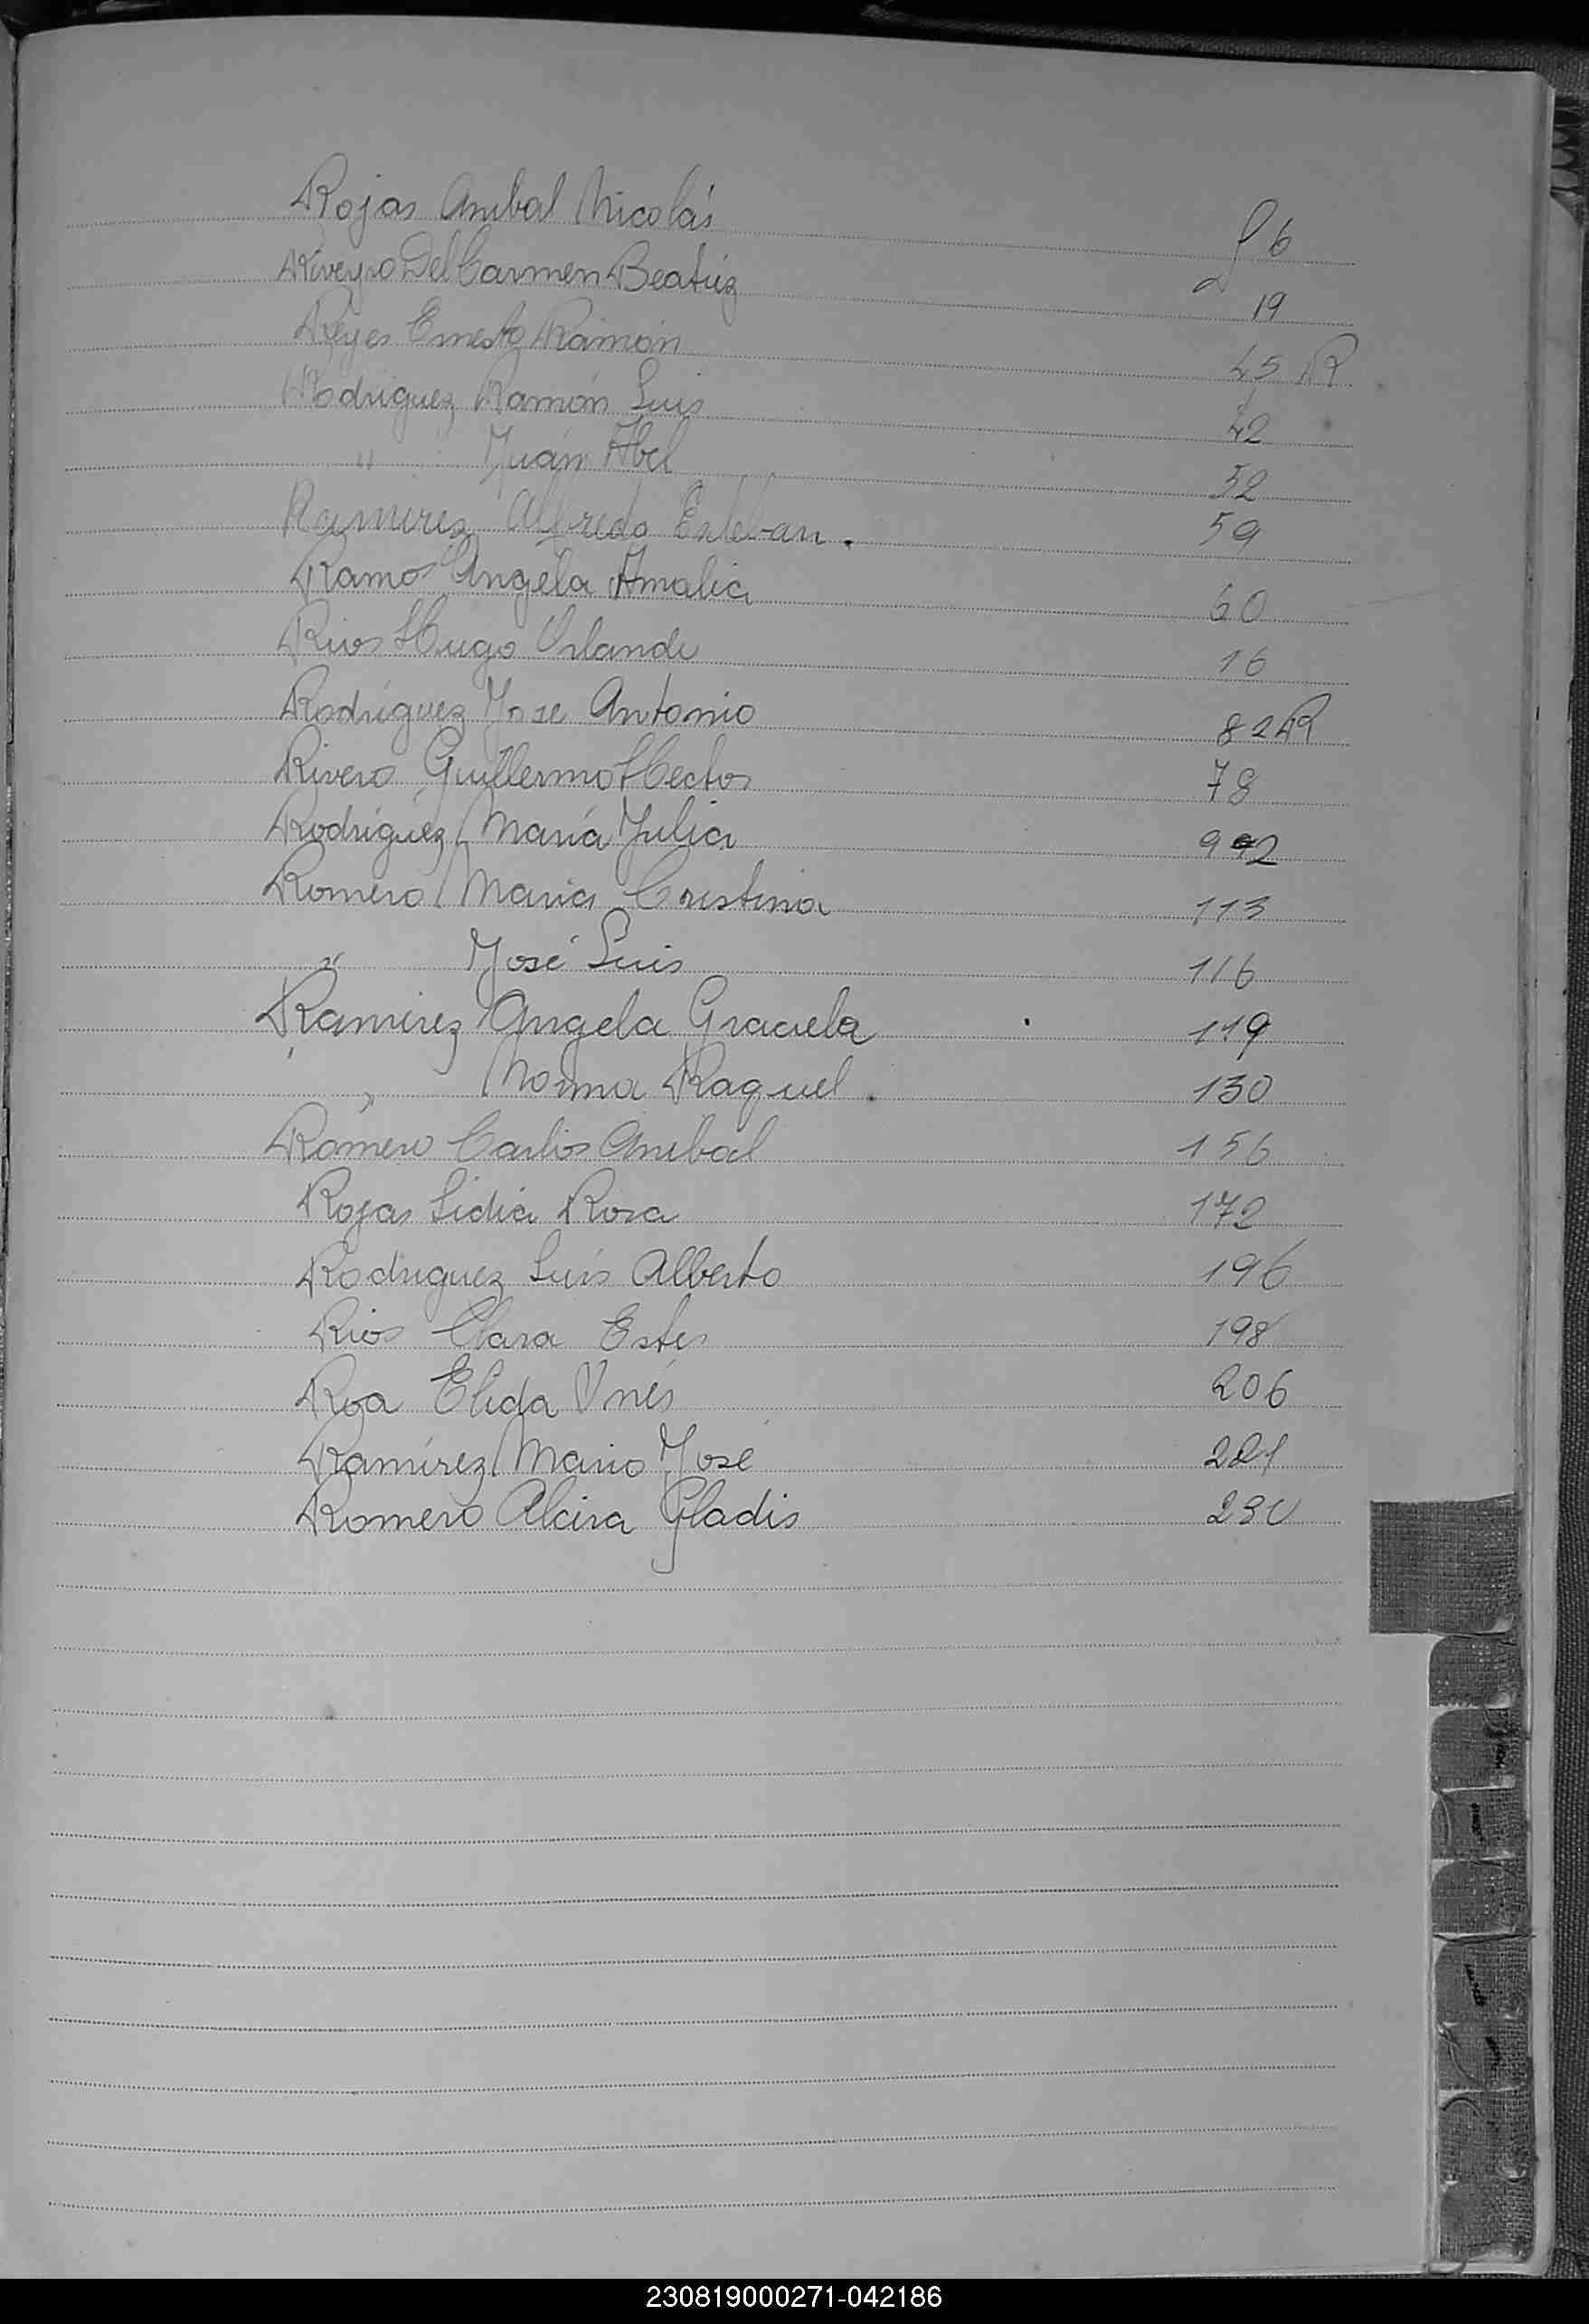 Rojas Anibal Nicolás f 6
Riveyro Del Carmen Beatriz 19
Reyes Ernesto Ramón 45 R
Rodriguez Ramón Luis 42
" Juán Abel 52
Ramirez Alfredo Esteban. 59
Ramos Angela Amalia 60
Rios Hugo Orlando 16
Rodriguez Jose Antonio 82R
Rivero Guillermo Hector 78
Rodriguez María Julia 92
Romero Maria Cristina 113
" José Luis 116
Ramirez Angela Graciela 119
" Norma Raquel. 130
Romero Carlos Anibal 156
Rojas Lidia Rosa 172
Rodriguez Luís Alberto 196
Rios Clara Ester 198
Roa Elida Ynés 206
Ramírez Mario José 221
Romero Alcira Gladis 230
230819000271-042186